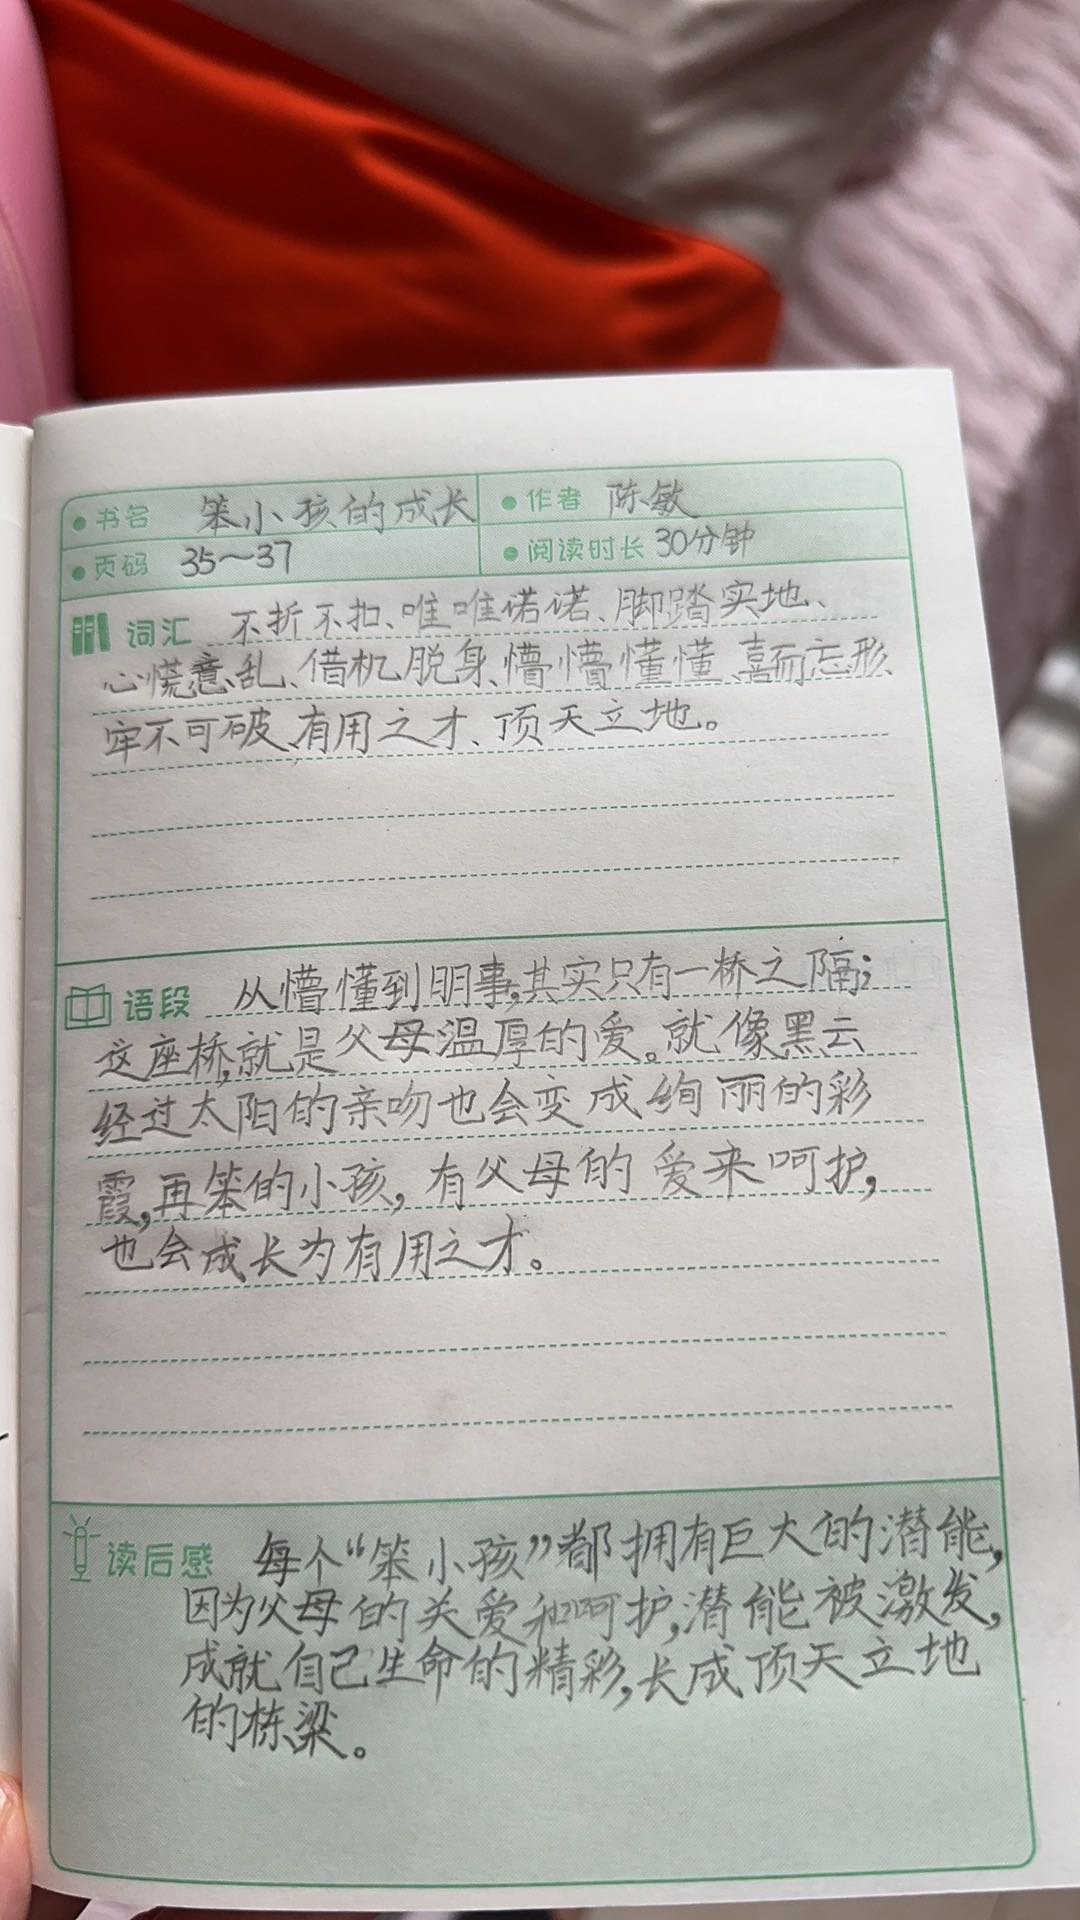 书名 笨小孩的成长 作者 陈敏
页码 35~37 阅读时长 30分钟
词汇 不折不扣、唯唯诺诺、脚踏实地、
心慌意乱、借机脱身、懵懵懂懂、喜而忘形、
牢不可破、有用之才、顶天立地。
语段 从懵懂到明事,其实只有一桥之隔;
这座桥,就是父母温厚的爱。就像黑云
经过太阳的亲吻也会变成绚丽的彩
霞,再笨的小孩,有父母的爱来呵护,
也会成长为有用之才。
读后感 每个“笨小孩”都拥有巨大的潜能,
因为父母的关爱和呵护,潜能被激发,
成就自己生命的精彩,长成顶天立地
的栋梁。